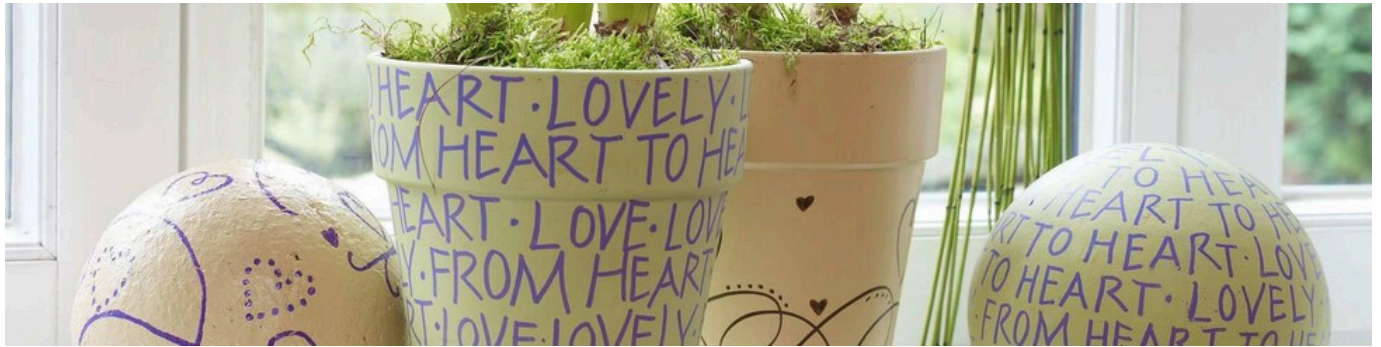 HEART · LOVELY ·
FROM HEART TO HEA
HEART · LOVE · LOVE
Y · FROM HEART
RT · LOVE · LOVELY ·
ELY
TO HEA
HEART TO HE
RT TO HEART · LOVE
TO HEART · LOVELY
FROM HEART TO HE